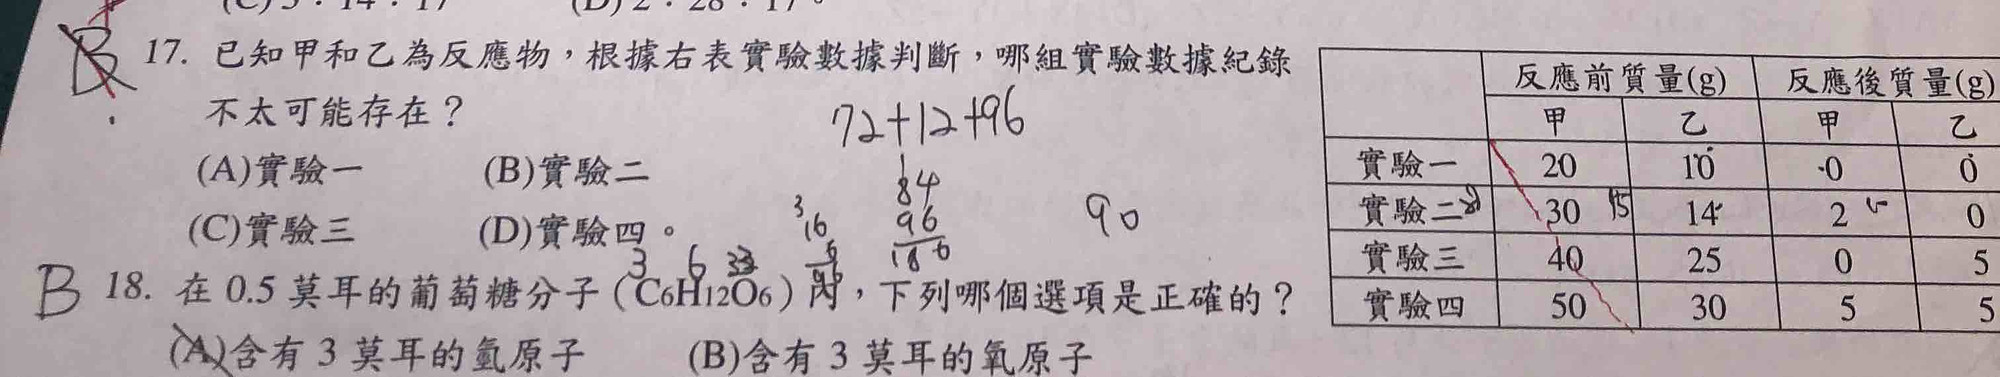 B 17. 已知甲和乙為反應物，根據右表實驗數據判斷，哪組實驗數據紀錄
不太可能存在？
72+12+96
(A)實驗一 (B)實驗二
84
96
180
16
90
(C)實驗三 (D)實驗四。
反應前質量(g) 反應後質量(g)
甲 乙 甲 乙
實驗一 20 10 0 0
實驗二 30 14 2 0
實驗三 40 25 0 5
實驗四 50 30 5 5
3 6
B 18. 在 0.5 莫耳的葡萄糖分子（C6H12O6）內，下列哪個選項是正確的？
(A)含有 3 莫耳的氫原子 (B)含有 3 莫耳的氧原子